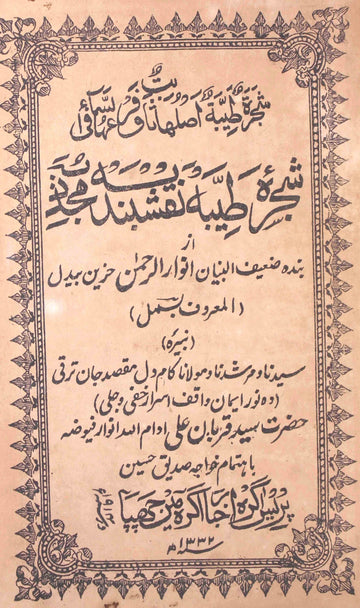 شجرۃ طیبۃ اصلہا ثابت وفرعہا فی السماء
شجرۂ طیبہ نقشبندیہ مجددیہ
از
بندہ ضعیف البنیان انوار الرحمٰن حزین بیدل
(المعروف بسمل)
(نبیرہ)
سیدنا و مرشدنا و مولانا کام دل مقصد جان ترقی
(دہ نور ایمان واقف اسرار خفی و جلی)
حضرت سید قربان علی ادام اللہ انوار فیوضہ
باہتمام خواجہ صدیق حسین
پریس آگرہ اخبار آگرہ مین چھپا
۱۳۳۲ھ